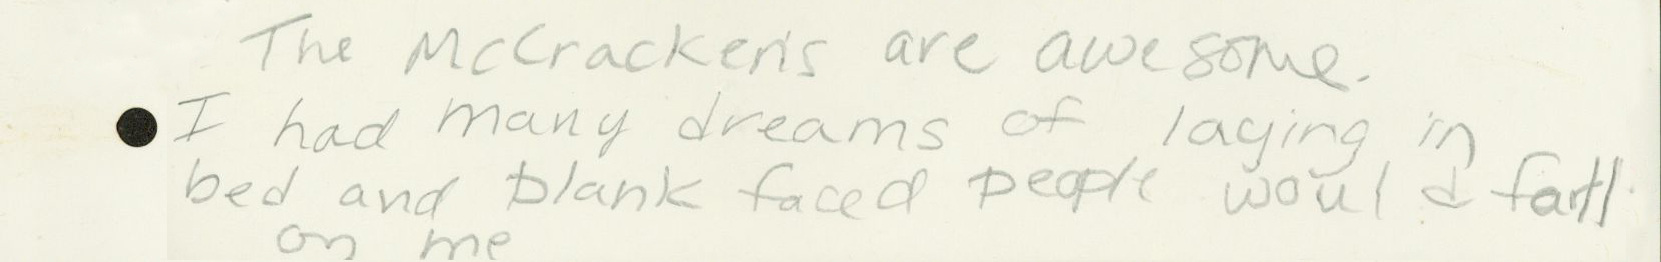 The McCracken's are awesome.
I had many dreams of laying in
bed and blank faced people would fall
on me